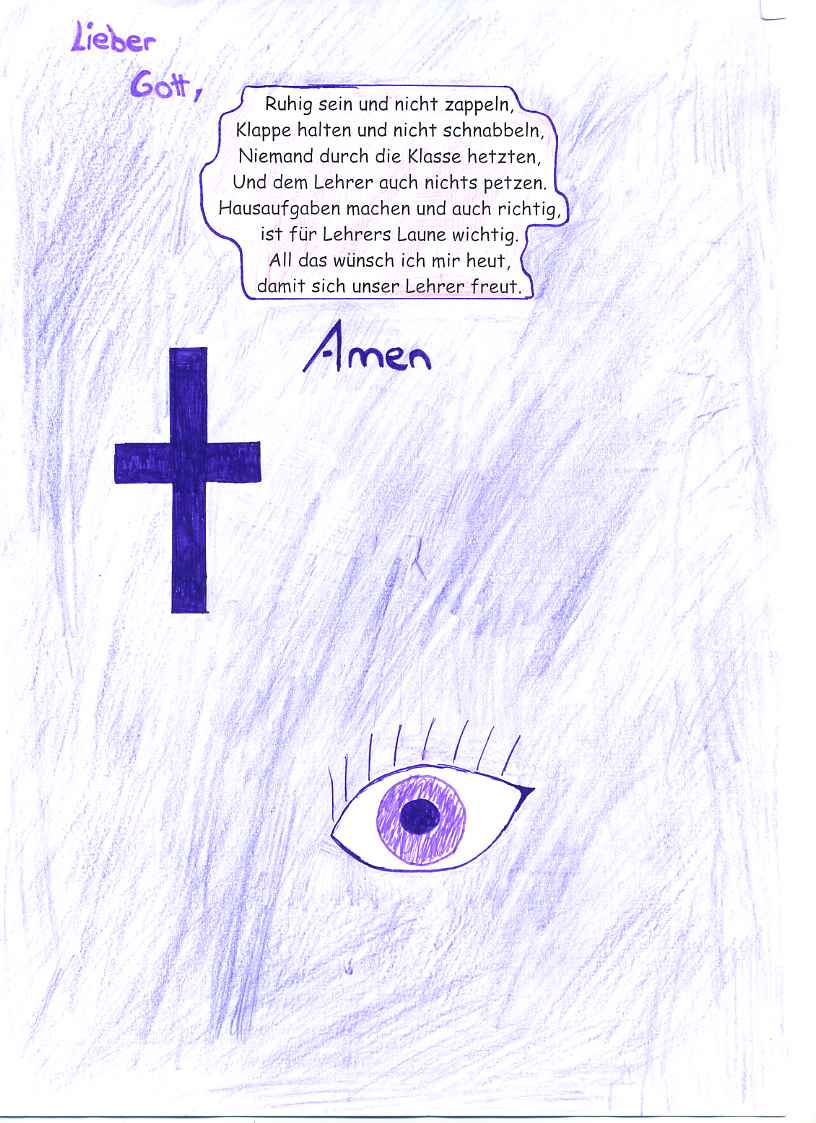 Lieber
Gott,
Ruhig sein und nicht zappeln,
Klappe halten und nicht schnabbeln,
Niemand durch die Klasse hetzten,
Und dem Lehrer auch nichts petzen.
Hausaufgaben machen und auch richtig,
ist für Lehrers Laune wichtig.
All das wünsch ich mir heut,
damit sich unser Lehrer freut.
Amen